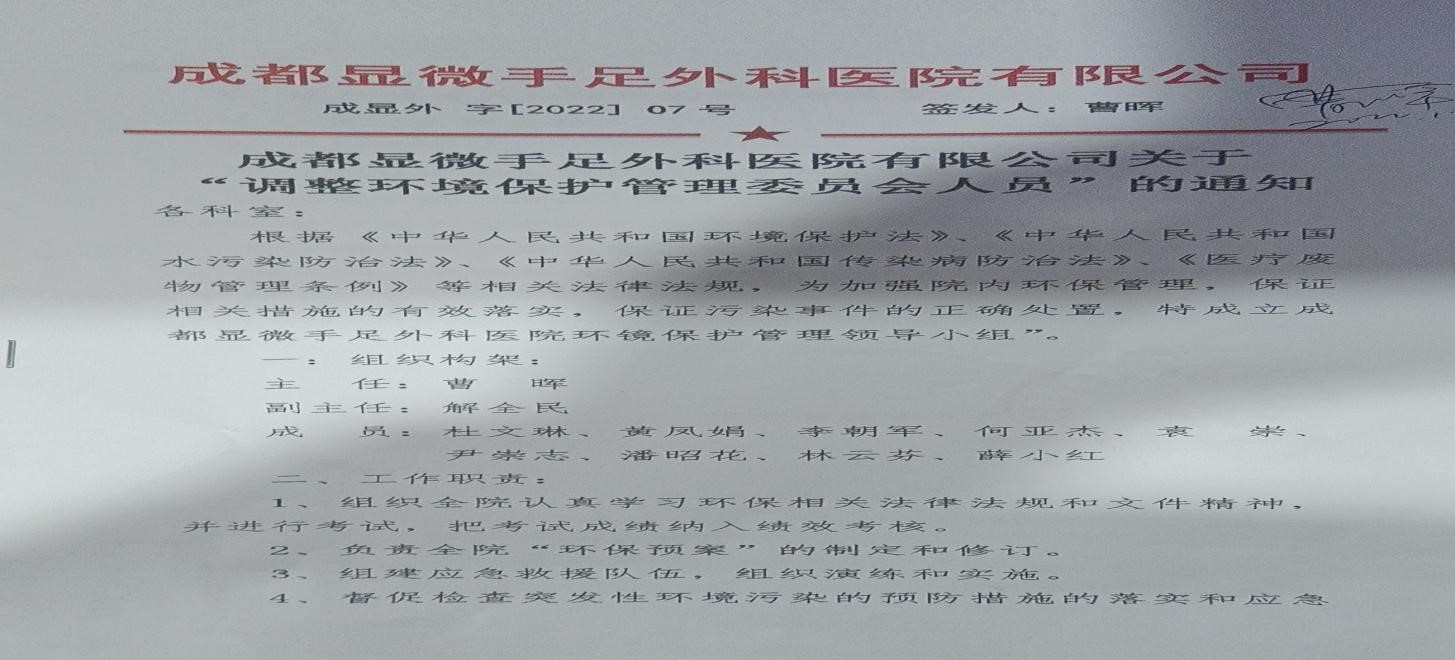 成都显微手足外科医院有限公司
成显外 字[2022] 07 号 签发人：曹晖
成都显微手足外科医院有限公司关于
“调整环境保护管理委员会人员”的通知
各科室：
根据《中华人民共和国环境保护法》、《中华人民共和国
水污染防治法》、《中华人民共和国传染病防治法》、《医疗废
物管理条例》等相关法律法规，为加强院内环保管理，保证
相关措施的有效落实，保证污染事件的正确处置，特成立成
都显微手足外科医院环镜保护管理领导小组”。
一：组织构架：
主 任：曹 晖
副主任：解全民
成 员：杜文琳、黄凤娟、李朝军、何亚杰、袁 崇、
尹崇志、潘昭花、林云芬、薛小红
二、工作职责：
1、组织全院认真学习环保相关法律法规和文件精神，
并进行考试，把考试成绩纳入绩效考核。
2、负责全院“环保预案”的制定和修订。
3、组建应急救援队伍，组织演练和实施。
4、督促检查突发性环境污染的预防措施的落实和应急